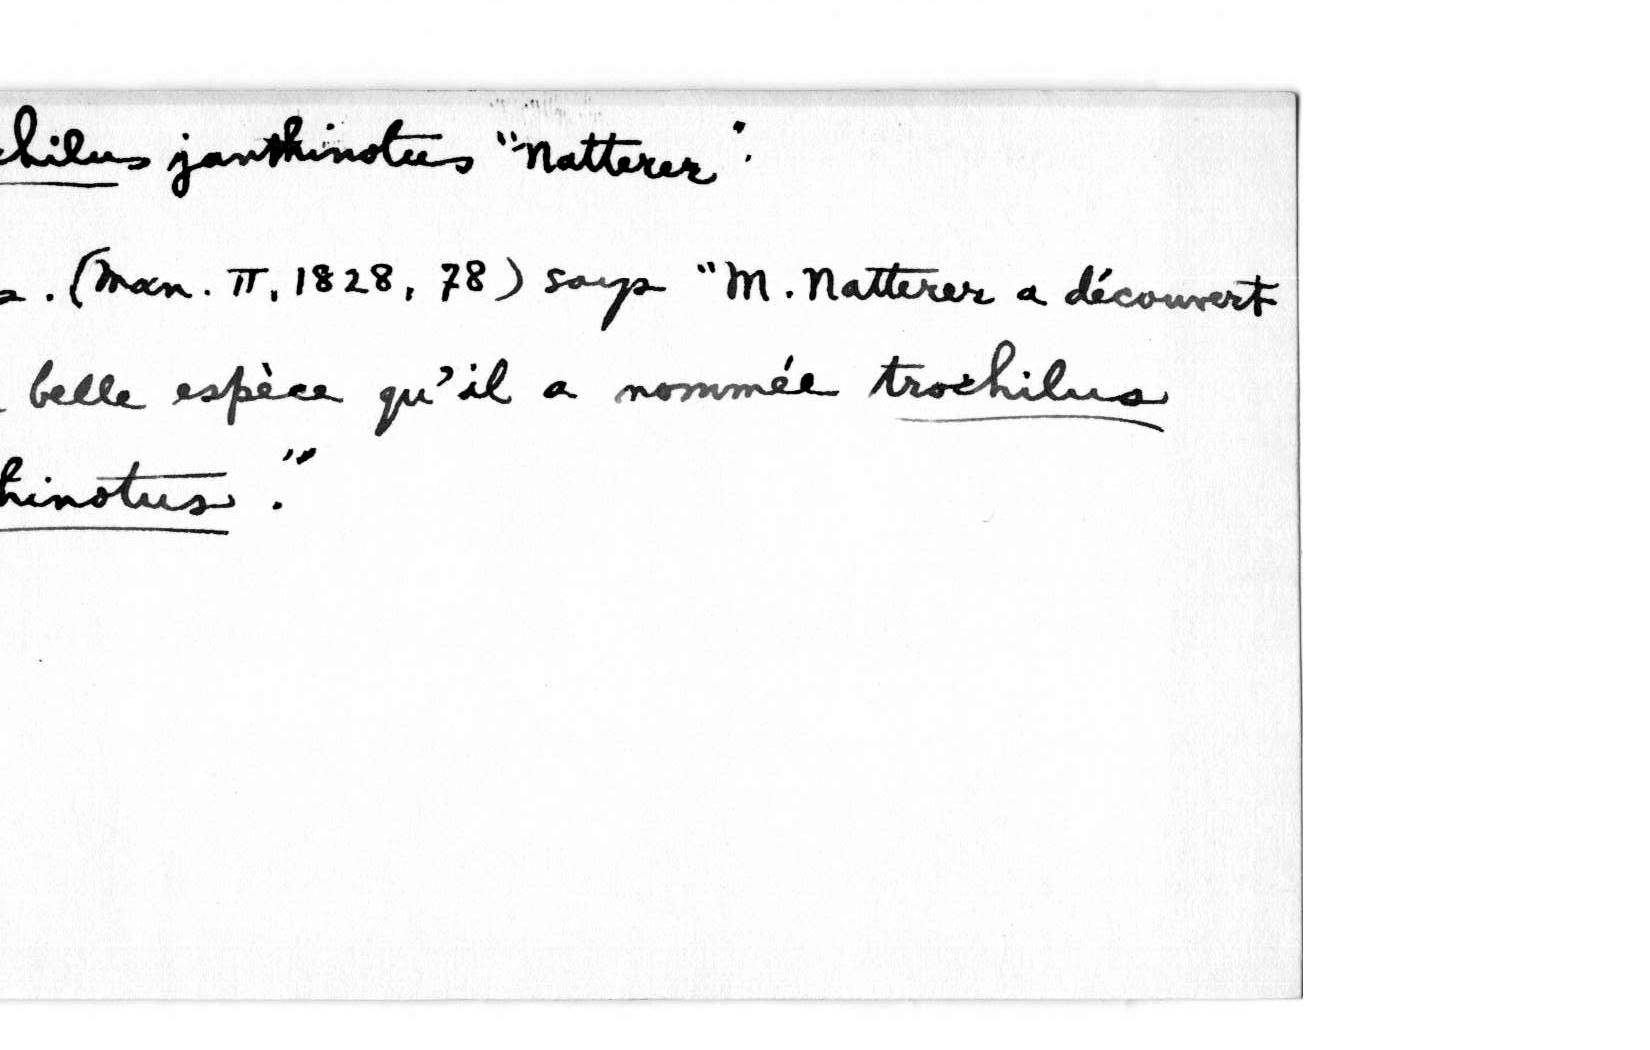 chilus janthinotus "Natterer".
. (Man. II, 1828, 78) says "M. Natterer a découvert
belle espèce qu'il a nommée trochilus
hinotus."